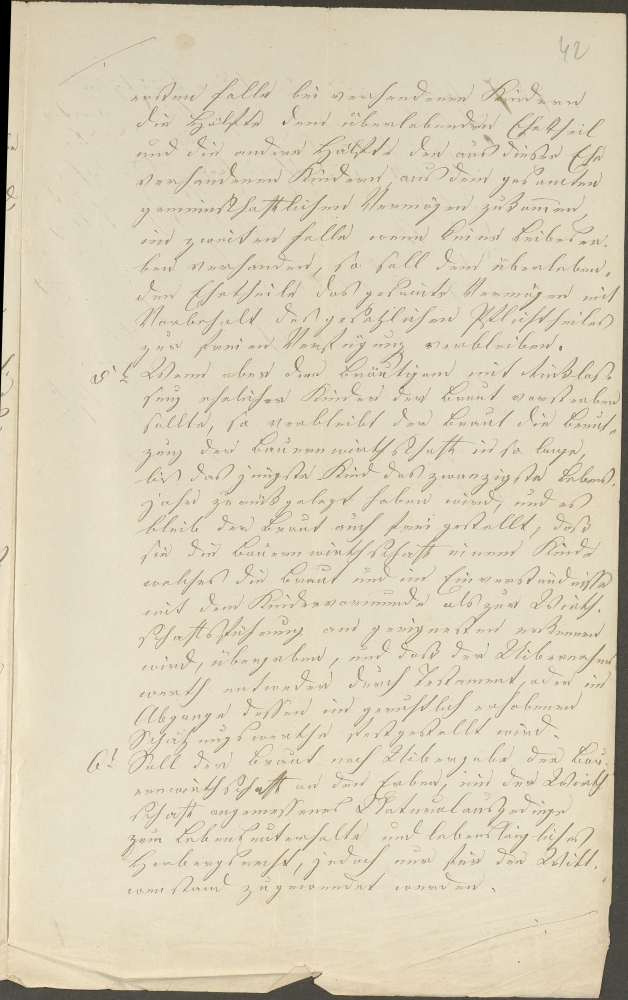 42
ersten Falle bei vorhandenen Kindern
die Hälfte dem überlebenden Ehetheil
und die andere Hälfte den aus dieser Ehe
vorhandenen Kindern aus dem gesamten
gemeinschaftlichen Vermögen zukommen,
im zweiten Falle wenn keine Leibeser-
ben vorhanden, so soll dem überleben-
den Ehetheile das gesamte Vermögen mit
Vorbehalt des gesetzlichen Pflichttheiles
zur freien Verfügung verbleiben.
5t. Wenn aber der Bräutigam mit Rücklas-
sung ehelicher Kinder der Braut versterben
sollte, so verbleibt der Braut die Benüt-
zung der Bauernwirthschaft in so lange,
bis das jüngste Kind das zwanzigste Lebens-
jahr zurückgelegt haben wird, und es
bleib der Braut auch frei gestellt, daß
sie die Bauernwirthschaft einem Kinde
welches die Braut und im Einverständnisse
mit dem Kindervormunde als zur Wirth-
schaftsführung am geeignesten erkennen
wird, übergeben, und daß der Uibernahms
werth entweder durch Testament, oder im
Abgange dessen im gerichtlich erhobenen
Schätzungswerthe festgestellt wird.
6t. Soll der Braut nach Uibergabe der Bau-
ernwirthschaft an den Erben, ein der Wirth
schaft angemessenes Naturalausgedinge
zum Lebensunterhalte und lebenslängliches
Herbergsrecht, jedoch nur für den Witt-
wenstand zugewendet werden.